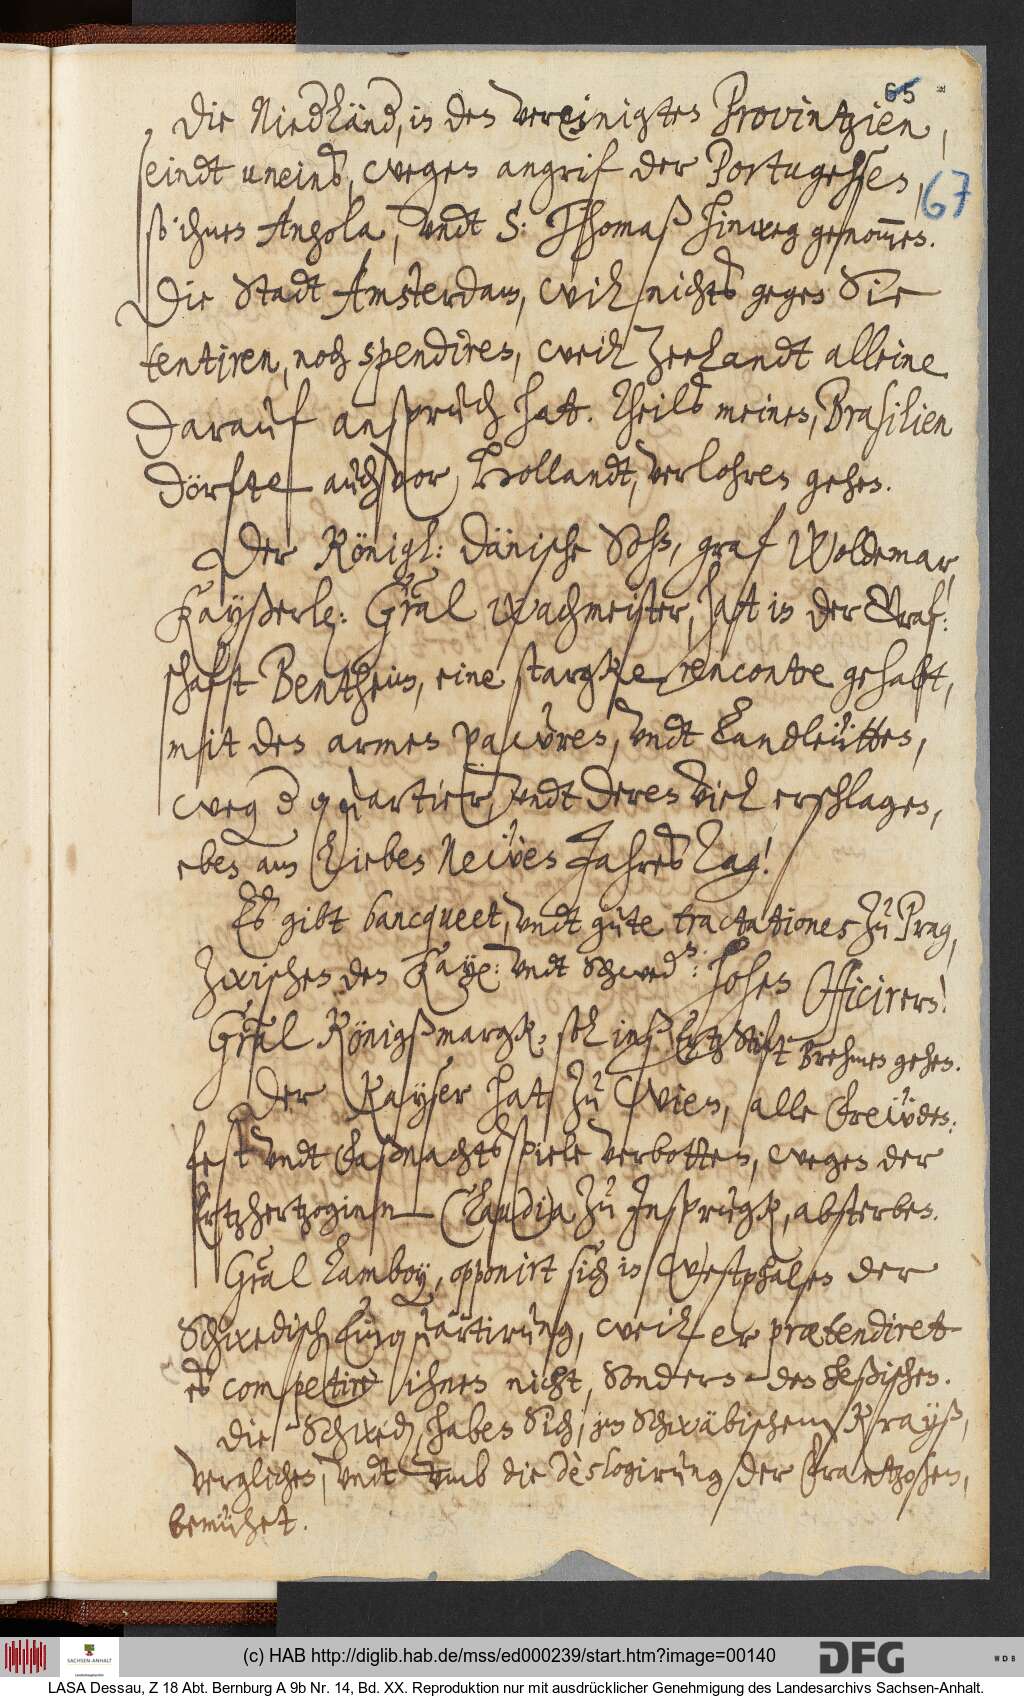 65
67
Die Niedländ, in den vereinigten Provintzien,
seindt uneins, wegen angrif der Portugesen,
so ihnen Angola, undt S: Thomaß hinweg genom̅en.
Die Stadt Amsterdam, wil nichts gegen Sie
tentiren, noch spendiren, weil Zeelandt alleine
darauf anspruch hat. Theils meinen, Brasilien
dörfte auch vor Hollandt, verlohren gehen.
Der Königl: Dänische Sohn, graf Woldemar,
Kayßerl: G͞ral Wachmeister, hatt in der Graf:
schafft Bentheim, eine stargke rencontre gehabt,
mit den armen pawren, undt Landleütten,
weg d quartier, undt deren viel erschlagen,
eben am Lieben Neẅen Jahrs Tag!
Es gibt bancqueet, undt gute tractationes zu Prag,
zwischen den Kay: undt Schwed: hohen Officirern!
G͞ral Königßmargk, sol inß Ertz Stift Brehmen gehen.
Der Kayser hat zu Wien, alle Freẅden:
fest undt Faßnachtsspiele verbotten, wegen der
Ertzhertzoginn Claudia zu Insprugk, absterben.
G͞ral Lamboy, opponirt sich in Westphalen der
Schwedisch Einquartirung, weil er prætendiret
es competire ihnen nicht, sondern den Heßischen.
Die Schwed, haben Sich, im Schwäbischem Krayß,
verglichen, undt umb die deslogirung der Frantzosen,
bemühet.
(c) HAB http://diglib.hab.de/mss/ed000239/start.htm?image=00140
SACHSEN-ANHALT
DFG
WDB
LASA Dessau, Z 18 Abt. Bernburg A 9b Nr. 14, Bd. XX. Reproduktion nur mit ausdrücklicher Genehmigung des Landesarchivs Sachsen-Anhalt.